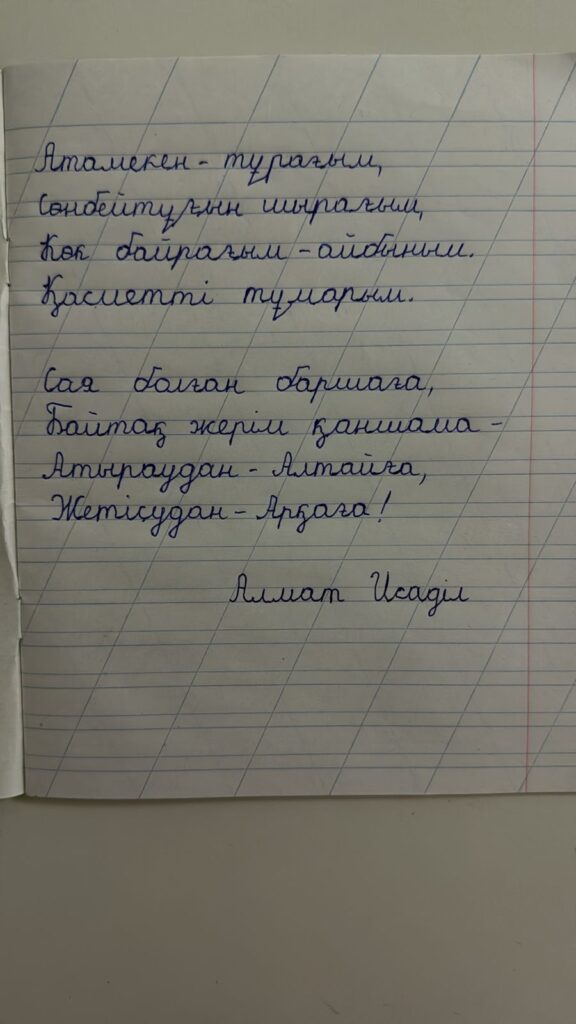 Атамекен - тұрағым,
Сөнбейтұғын шырағым,
Көк байрағым - айбыным.
Қасиетті тұмарым.
Сая болған баршаға,
Байтақ жерім қаншама -
Атыраудан - Алтайға,
Жетісудан - Арқаға!
Алмат Исаділ